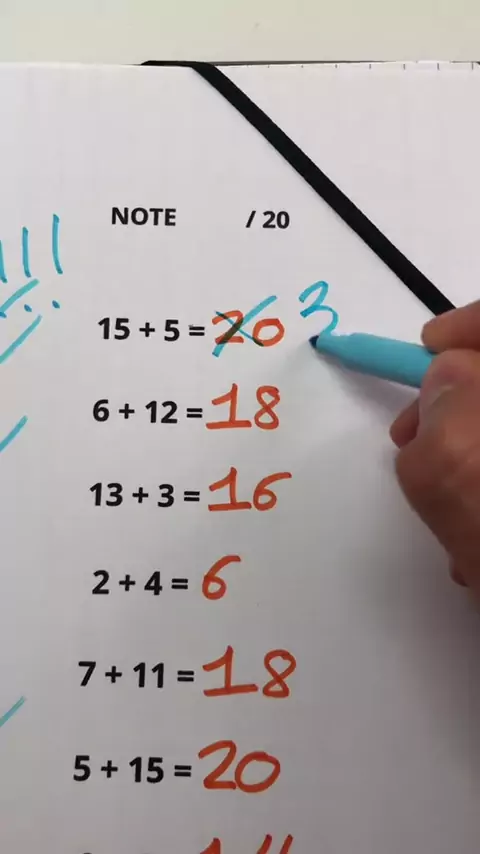 NOTE / 20
!!!
15 + 5 = 20 3
6 + 12 = 18
13 + 3 = 16
2 + 4 = 6
7 + 11 = 18
5 + 15 = 20